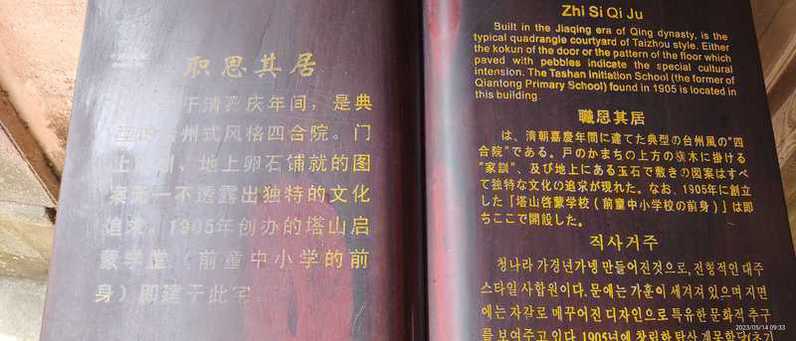 职思其居
于清嘉庆年间，是典
台州式风格四合院。门
上 ，地上卵石铺就的图
案无一不透露出独特的文化
追求。1905年创办的塔山启
蒙学堂（前童中小学的前
身）即建于此宅
Zhi Si Qi Ju
Built in the Jiaqing era of Qing dynasty, is the
typical quadrangle courtyard of Taizhou style. Either
the kokun of the door or the pattern of the floor which
paved with pebbles indicate the special cultural
intension. The Tashan Initiation School (the former of
Qiantong Primary School) found in 1905 is located in
this building
職思其居
は、清朝嘉慶年間に建てた典型の台州風の"四
合院"である。戸のかまちの上方の横木に掛ける
"家訓"、及び地上にある玉石で敷きの図案はすべ
て独特な文化の追求が現れた。なお、1905年に創立
した「塔山啓蒙学校（前童中小学校の前身）」は即
ちここで開設した。
직사거주
청나라 가경년가넹 만들어진것으로, 전형적인 대주
스타일 사합원이다. 문에는 가훈이 세겨져 있으며 지면
에는 자갈로 메꾸어진 디자인으로 특유한 문화적 추구
를 보여주고 있다. 1905년에 창립한 탑산 계몽학당(초기
2023/05/14 09:33